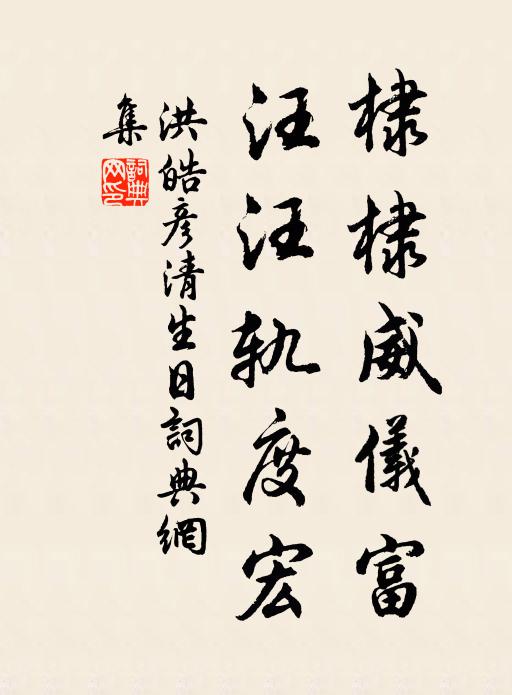 棣棣威儀富
汪汪軌度宏
洪皓彥清生日詞典網
集
詞典網印